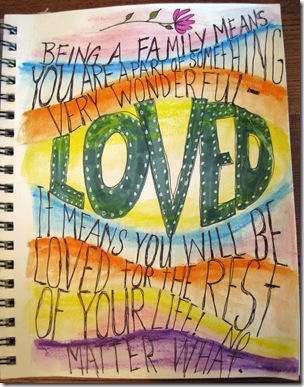 BEING A FAMILY MEANS
YOU ARE A PART OF SOMETHING
VERY WONDERFUL-
LOVED
IT MEANS YOU WILL BE
LOVED FOR THE REST
OF YOUR LIFE! NO
MATTER WHAT.